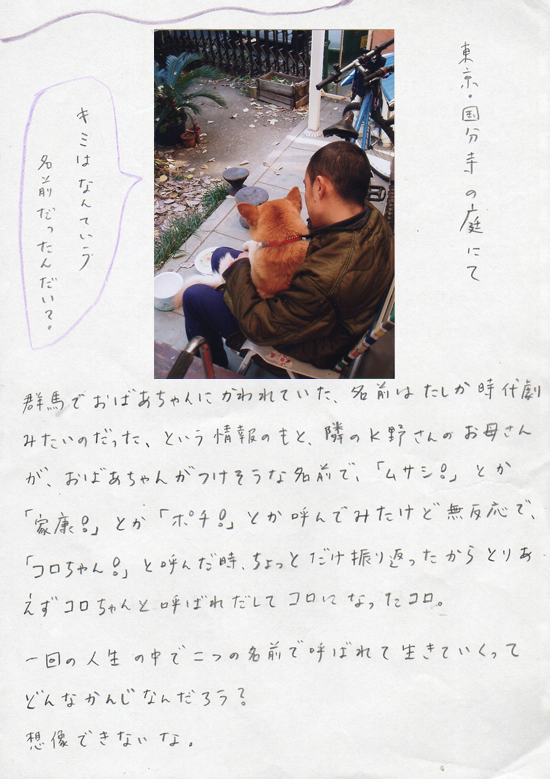 東京・国分寺の庭にて
キミはなんていう
名前だったんだいて。
群馬でおばあちゃんにかわれていた、名前はたしか時代劇
みたいのだった、という情報のもと、隣のK野さんのお母さん
が、おばあちゃんがつけそうな名前で、「ムサシ!」とか
「家康!」とか「ポチ!」とか呼んでみたけど無反応で、
「コロちゃん!」と呼んだ時、ちょっとだけ振り返ったからとりあ
えずコロちゃんと呼ばれだしてコロになったコロ。
一回の人生の中で二つの名前で呼ばれて生きていくって
どんなかんじなんだろう?
想像できないな。